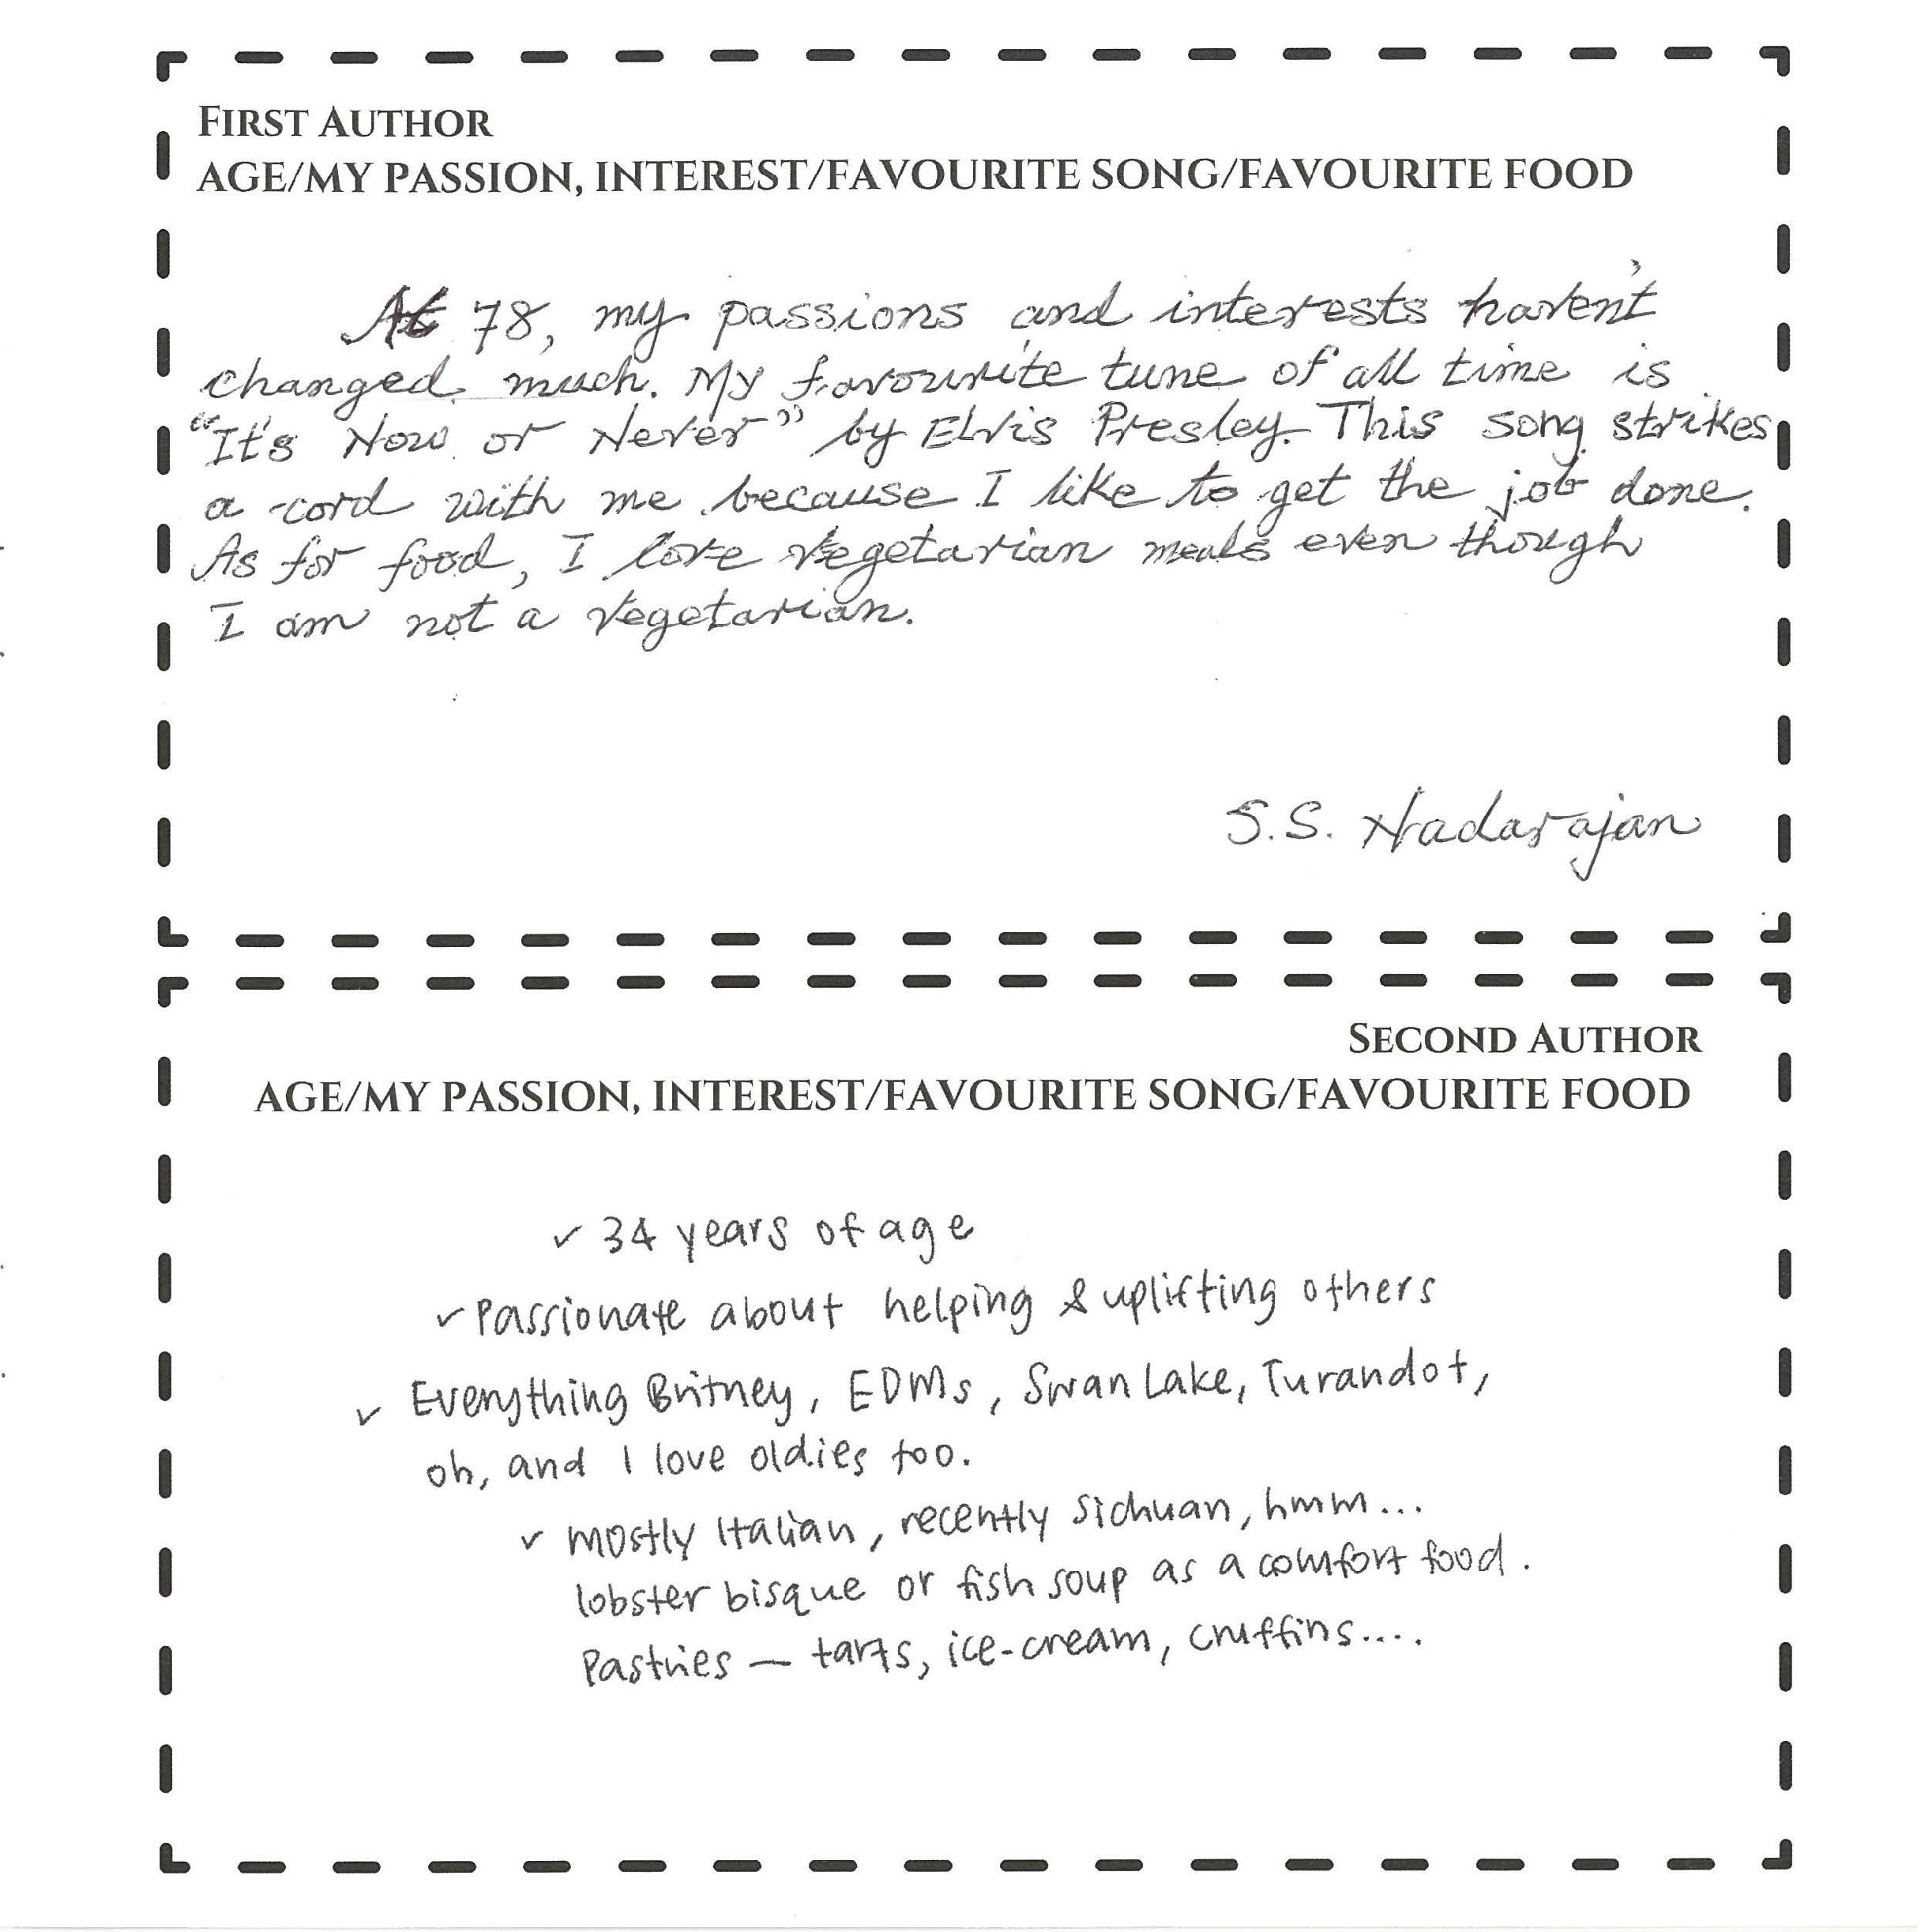 FIRST AUTHOR
AGE/MY PASSION, INTEREST/FAVOURITE SONG/FAVOURITE FOOD
At 78, my passions and interests haven't
changed much. My favourite tune of all time is
"It's Now or Never" by Elvis Presley. This song strikes
a cord with me because I like to get the job done.
As for food, I love vegetarian meals even though
I am not a vegetarian.
S.S. Nadarajan
SECOND AUTHOR
AGE/MY PASSION, INTEREST/FAVOURITE SONG/FAVOURITE FOOD
✓ 34 years of age
✓ Passionate about helping & uplifting others
✓ Everything Britney, EDMs, Swan Lake, Turandot,
oh, and I love oldies too.
✓ mostly Italian, recently Sichuan, hmm...
lobster bisque or fish soup as a comfort food.
Pastries — tarts, ice-cream, cruffins....